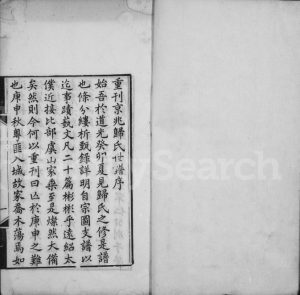 重刊京兆歸氏世譜序
始吾於道光癸卯夏見歸氏之修是譜
也條分縷析甄錄詳明自宗圖支譜以
迄事蹟藝文凡二十篇彬彬乎遠紹太
僕近接比部虞山家乘至是燦然大備
矣然則今何以重刊曰亡於庚申之難
也庚申秋粵匪入城故家喬木蕩焉如
Search